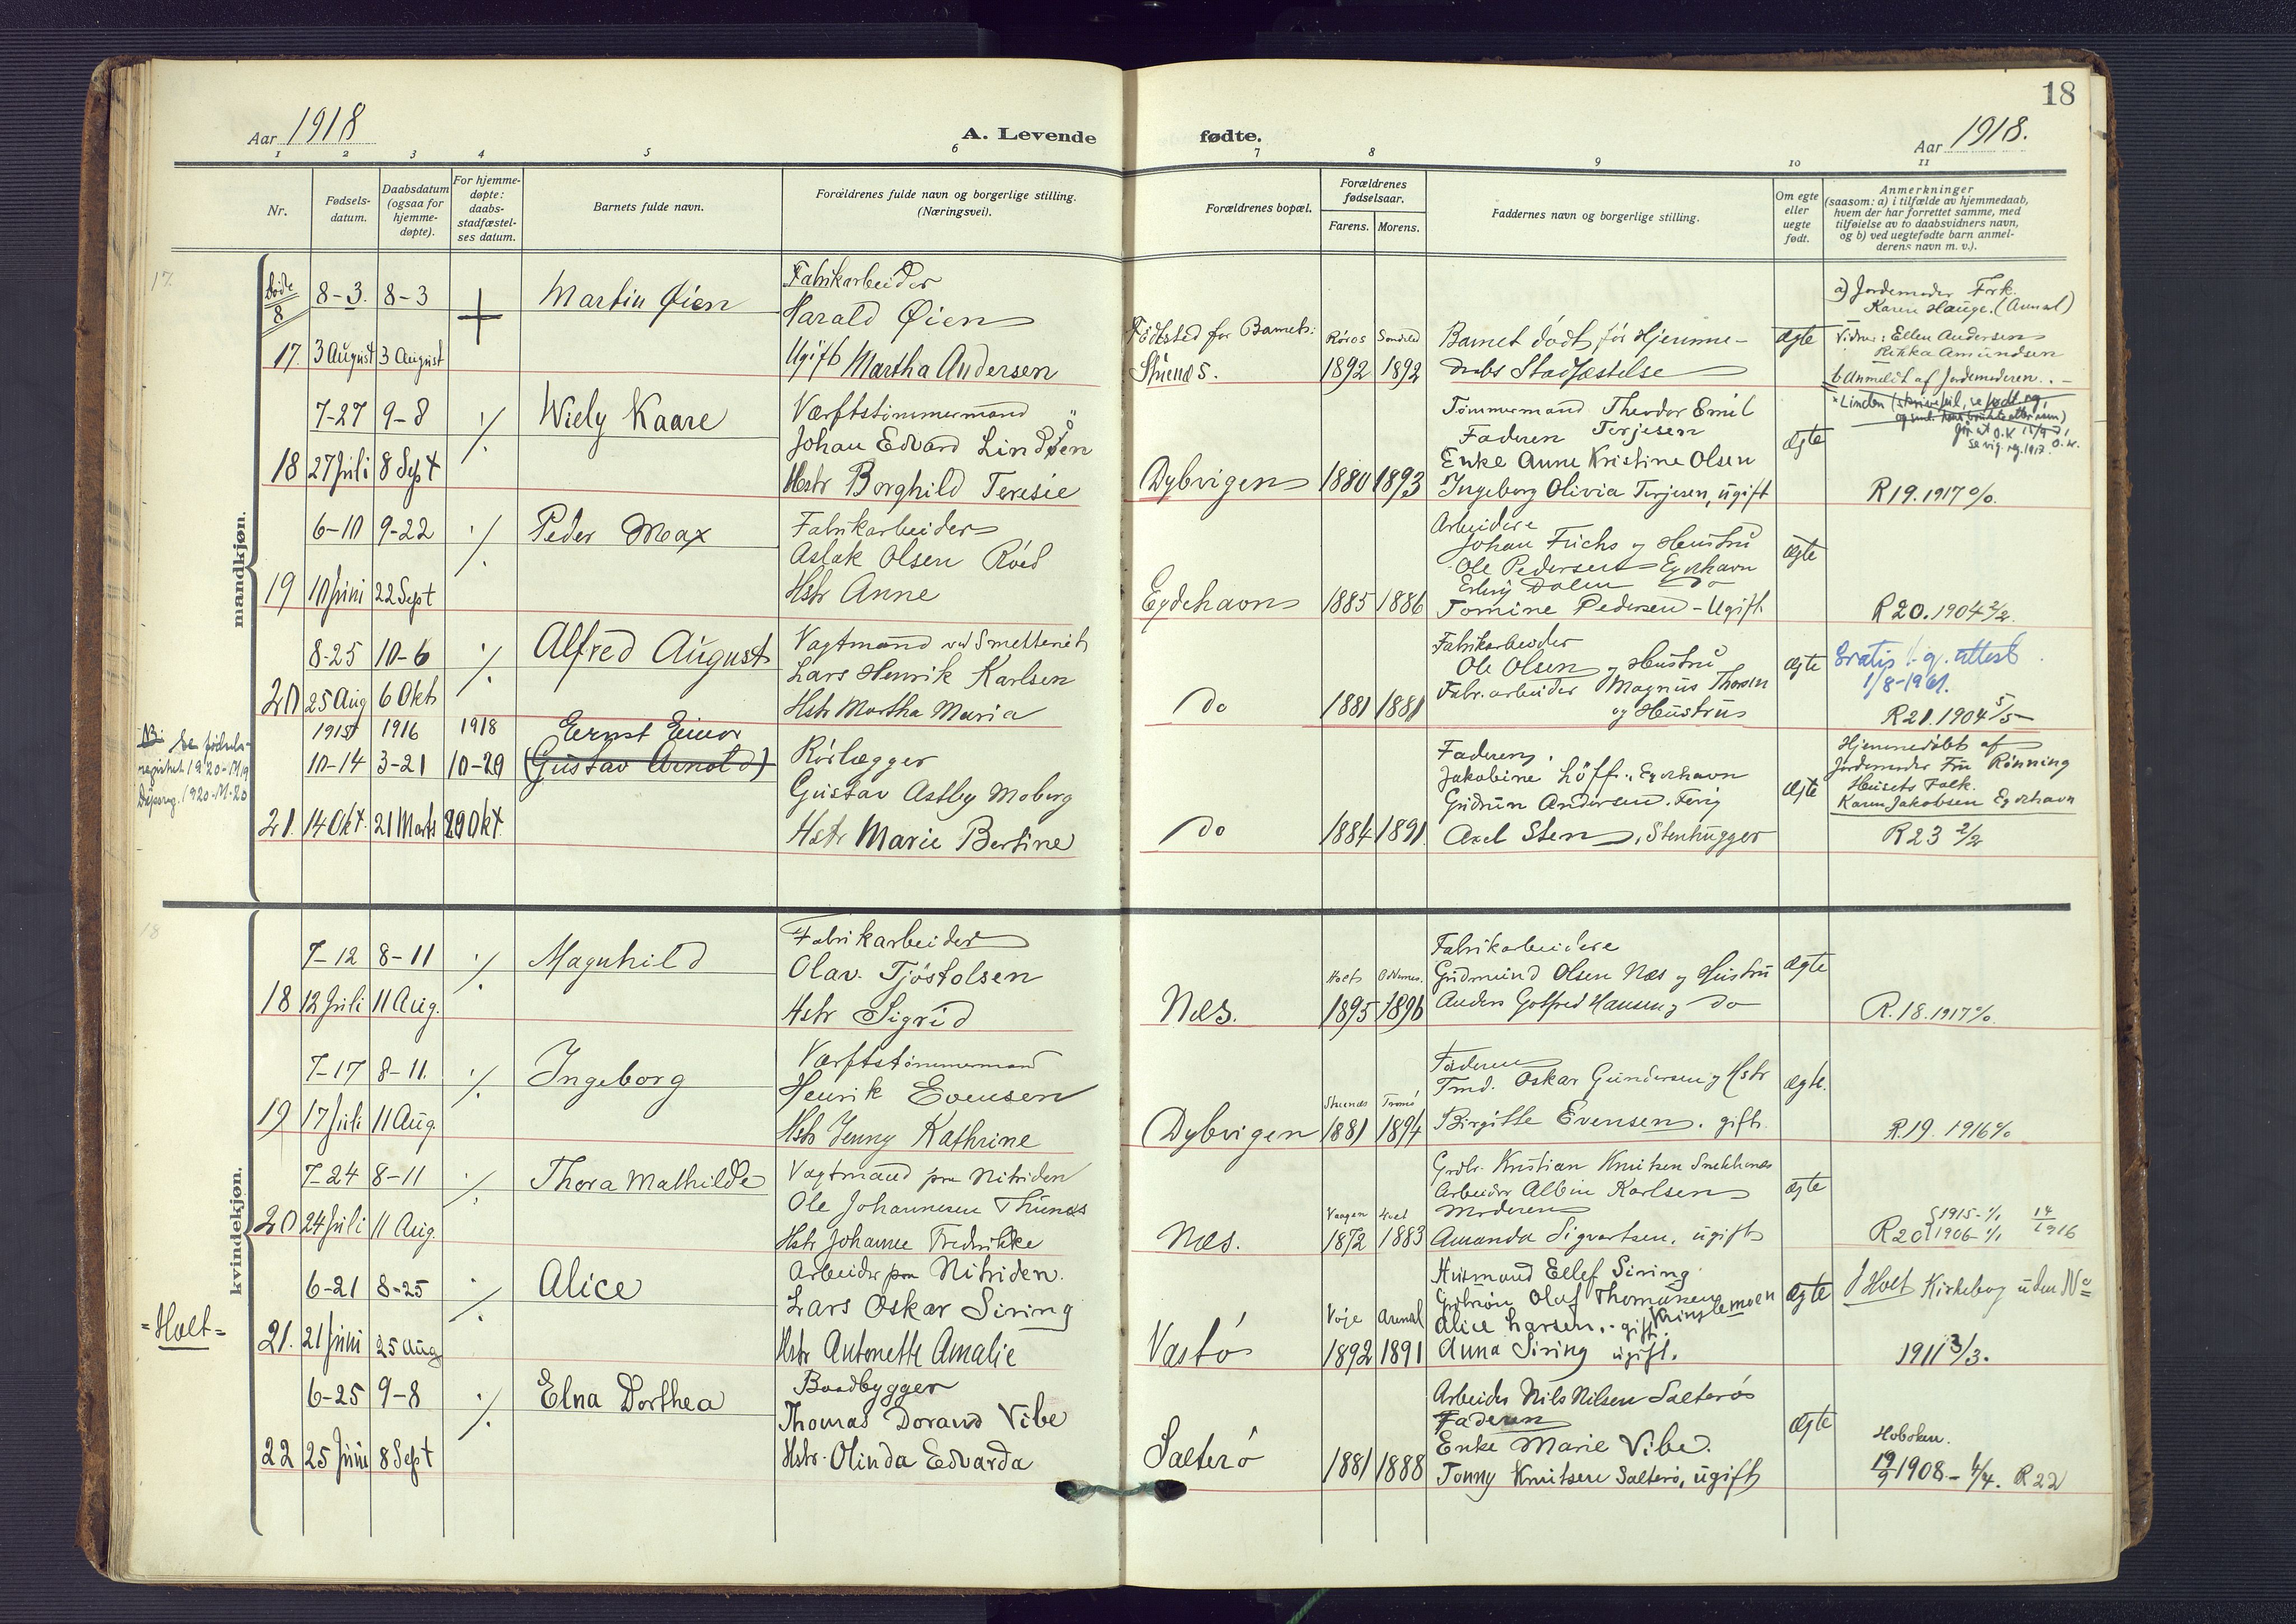 18
Aar 1918
A. Levende
fødte.
Aar 1918.
1 2 3 4 5 6 7 8 9 10 11
Nr.
Fødsels-
datum.
Daabsdatum
(ogsaa for
hjemme-
døpte).
For hjemme-
døpte:
daabs-
stadfæstel-
ses datum.
Barnets fulde navn.
Forældrenes fulde navn og borgerlige stilling.
(Næringsvei).
Forældrenes bopæl.
Forældrenes
fødselsaar.
Farens. Morens.
Faddernes navn og borgerlige stilling.
Om egte
eller
uegte
født.
Anmerkninger
(saasom: a) i tilfælde av hjemmedaab,
hvem der har forrettet samme, med
tilføielse av to daabsvidners navn,
og b) ved uegtefødte barn anmel-
derens navn m. v.).
17
mandkjøn.
Døde
8
8-3. 8-3
17. 3 August 3 August
Martin Øien
Fabrikarbeider
Harald Øien
Ugift Martha Andersen
Fødested for Barnet:
Stuenæs.
Røros
1892
Søndeled
1892
Barnet dødt før Hjemme-
daabs Stadfæstelse
ægte
a) Jordemoder Frk.
Karen Hauge. (Arendal)
Vidner: Ellen Andersen
Rikka Amundsen
b Anmeldt af Jordemoderen.
7-27 9-8 ./.
18 27 Juli 8 Sept
Wiely Kaare
Værftstømmermand
Johan Edvard Lindøen
Hstr Borghild Teresie
Dybvigen 1880 1893
Tømmermand Theodor Emil
Faderen Terjesen
Enke Anne Kristine Olsen
Ingeborg Olivia Terjesen, ugift
ægte
R 19. 1917 %.
6-10 9-22 ./.
19 10 Juni 22 Sept
Peder Max
Fabrikarbeider
Aslak Olsen Röed
Hstr Anne
Eydehavn 1885 1886
Arbeidere
Johan Fuchs og Hustru
Ole Pedersen Eydehavn
Erling Dalen Do
Tomine Pedersen - Ugift
ægte
R 20. 1904 2/2.
8-25 10-6 ./.
20 25 Aug 6 Okt
Alfred August
Vagtmand ved Smelteriet
Lars Henrik Karlsen
Hstr Martha Maria
Do 1881 1881
Fabrikarbeider
Ole Olsen og Hustru
Fabr.arbeider Magnus Thorsen
og Hustru
ægte
Gratis attest
1/8-1961.
R 21. 1904 5/5
NB. Se fødsels-
registret 1920-M19
Dypvåg. 1920-M-20
1915 1916 1918
10-14 3-21 10-29
21. 14 Okt. 21 Marts 29 Okt.
Ernst Einar
(Gustav Arnold)
Rørlægger
Gustav Astby Moberg
Hstr Marie Bertine
Do 1884 1891
Faderen.
Jakobine Löff. Eydehavn
Gudrun Andersen. Ferig
Axel Sten, Stenhugger
ægte
Hjemmedøbt af
Jordemoder Fru Rönning
Husets Folk.
Karen Jakobsen Eydehavn
R 23 2/2
18
kvindekjøn.
7-12 8-11 ./.
18 12 Juli 11 Aug.
Magnhild
Fabrikarbeider
Olav Tjöstolsen
Hstr Sigrid
Næs.
Holt
1895 1896
Fabrikarbeidere
Gudmund Olsen Næs og Hustru
Anders Gotfred Hansen, Do
ægte
R. 18. 1917 %.
7-17 8-11. ./.
19 17 Juli 11 Aug.
Ingeborg
Værftstömmermand
Henrik Evensen
Hstr Jenny Kathrine
Dybvigen
Stuenæs Tromö
1881 1894
Faderen
Tmd. Oskar Gundersen og Hstr
Birgitte Evensen. gift.
ægte.
R. 19. 1916 %
7-24 8-11 ./.
20 24 Juli 11 Aug.
Thora Mathilde
Vagtmand paa Nitriden
Ole Johannesen Thunæs
Hstr Johanne Fredrikke
Næs.
Vaagen Holt
1872 1883
Grdbr. Kristian Knutsen
Arbeider Albin Karlsen
Moderen
Amanda Sigvartsen. ugift
ægte
R 20 {1915-1/1 1906-1/1 14/1916
=Holt=
6-21 8-25 ./.
21. 21 Juni 25 Aug
Alice
Arbeider paa Nitriden.
Lars Oskar Siring
Hstr Antonette Amalie
Vastö
Voje Arendal
1892 1891
Husmand Ellef Siring
Olaf Thomassen
Alice Larsen, gift. Kringlemoen
Anna Siring ugift.
ægte
I Holt Kirkebog uden No
1911 3/3.
6-25 9-8 ./.
22 25 Juni 8 Sept
Elna Dorthea
Baadbygger
Thomas Dorand Vibe
Hstr. Olinda Edvarda
Salterö 1881 1888
Arbeider Nils Nilsen Salterös
Faderen
Enke Marie Vibe.
Tonny Knutsen Salterö, ugift
ægte
Hoboken.
19/9 1908 - 4/4. R 22